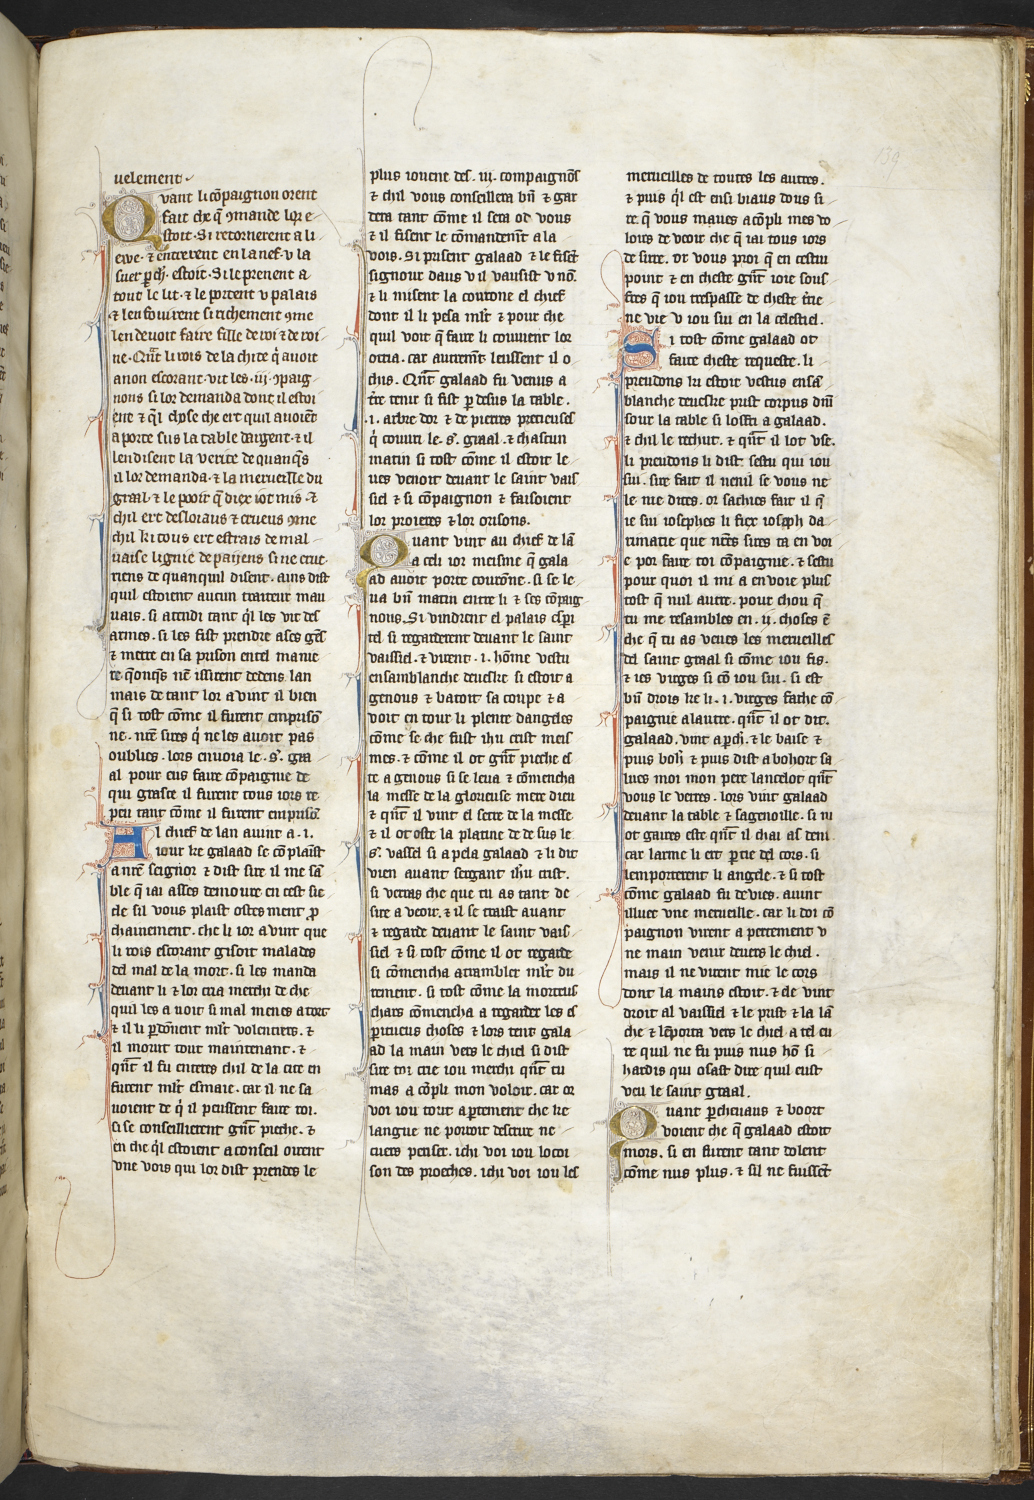 uelement
Quant li cōpaignon orent
fait che q̄ ꝯmande lor e-
stoit. Si retornerent a li
eive. ⁊ entrerent en la nef. v la
suer ꝑch̓. estoit. Si le prenent a
tout le lit. ⁊ le portent v palais
⁊ len fouirent si richement ꝯme
len deuoit faire fille de roi ⁊ de roi
ne. Qn̄t li rois de la chite q̓ auoit
a non escorant. vit les .iij. ꝯpaig
nons si lor demanda dont il estoi
ent ⁊ q̓l chose che ert quil auoiēt
aporte sus la table dargent. ⁊ il
len disent la verite de quanq̄s
il lor demanda. ⁊ la merueille du
graal. ⁊ le pooir q̄ diex i ot mis. ⁊
chil ert desloiaus ⁊ crueus ꝯme
chil ki tous ert estrais de mal
uaise lignie de paijens si ne crut
riens de quanquil disent. ains dist
quil estoient aucun traiteur mau
uais. si atendi tant q̓l les vit des
armes. si les fist prendre a ses gēs
⁊ metre en sa prison en tel manie
re. q̓onq̄s nē issirent dedens lan
mais de tant lor avint il bien
q̄ si tost cōme il furent emprisō
ne. nrē sires q̓ ne les auoit pas
oublies. lors enuoia le .s̓. gra
al pour eus faire cōpaignie de
qui grasce il furent tous iors re
peu tant cōme il furent emprisō.
Al chief de lan auint a .i.
iour ke galaad se cōplaīst
a nrē seignor ⁊ dist sire il me sā
ble q̄ iai asses demoure en cest sie
cle sil vous plaist ostes ment ꝓ
chainement. che li ior avint que
li rois escorant gisoit malades
del mal de la mort. si les manda
deuant li ⁊ lor cria merchi de che
quil les auoit si mal menes a tort
⁊ il li ꝑdonent ml̓t volentiers. ⁊
il morut tout maintenant. ⁊
qn̄t il fu enteres chil de la cite en
furent ml̓t esmaie. car il ne sa
uoient de q̓ il peussent faire roi.
si se conseillierent gn̄t pieche. ⁊
en che q̓l estoient a conseil oirent
vne vois qui lor dist prendes le
plus iouent des .iij. compaignōs
⁊ chil vous conseillera bn̄ ⁊ gar
dera tant cōme il sera od vous
⁊ il fisent le cōmandemt̄ a la
vois. Si prisent galaad ⁊ le fisēt
signour daus v il vausist v nō.
⁊ li misent la couronne el chief
dont il li pesa ml̓t ⁊ pour che
quil voit q̄ faire li couuient lor
otria. car autremt̄ leussent il o
chis. Qn̄t galaad fu venus a
t̄re tenir si fist ꝑ desus la table.
.i. arbre dor ⁊ de pierres precieuses
q̓ couuri le .s̓. graal. ⁊ chascun
matin si tost cōme il estoit le
ues venoit deuant le saint vais
siel ⁊ si cōpaignon ⁊ faisoient
lor proieres ⁊ lor orisons.
Quant vint au chief de lā
a celi ior meisme q̄ gala
ad auoit porte courōne. si se le
ua bn̄ matin entre li ⁊ ses cōpaig
nous. Si vindrent el palais espri
tel si regarderent deuant le saint
vaissiel. ⁊ virent .i. hōme vestu
en samblanche deueske. si estoit a
genous ⁊ batoit sa coupe ⁊ a
voit en tour li plente dangeles
cōme se che fust ihu crist meis
mes. ⁊ cōme il ot gn̄t pieche es
te a genous si se leua ⁊ cōmencha
la messe de la glorieuse mere dieu
⁊ qn̄t il vint el secre de la messe
⁊ il ot oste la platine de de sus le
.s̓. vassel si apela galaad ⁊ li dit
vien auant sergant ihu crist.
si verras che que tu as tant de
sire a veoir. ⁊ il se traist auant
⁊ regarde deuant le saint vais
siel ⁊ si tost cōme il ot regarde
si cōmencha a trambler ml̓t du
rement. si tost cōme la morteus
chars cōmencha a regarder les es
ꝑitueus choses ⁊ lors tent gala
ad la main vers le chiel si dist
sire toi crie iou merchi qn̄t tu
mas acōpli mon voloir. car or
voi iou tout apertement che ke
langue ne poroit descrire ne
cuers penser. ichi voi iou locoi
son des proeches. ichi voi iou les
merueilles de toutes les autres.
⁊ puis q̓l est ensi biaus dous si
re. q̄ vous maues acōpli mes vo
loirs de veoir che q̄ iai tous iors
desirre. or vous proi q̄ en cestui
point ⁊ en cheste gn̄t ioie sous
fres q̄ iou trespasse de cheste t̄rie
ne vie v iou sui en la celestiel.
Si tost cōme galaad ot
faite cheste requeste. li
preudons ki estoit vestus ensā
blanche deueske prist corpus dn̄i
sour la table si loffri a galaad.
⁊ chil le rechut. ⁊ qn̄t il lot vse.
li preudons li dist. sestu qui iou
sui. sire fait il nenil se vous ne
le me dites. or saches fait il q̄
ie sui iosephes li fiex ioseph da
rimatie que nrēs sires ta en voi
e por faire toi cōpaignie. ⁊ sestu
pour quoi il mi a en voie plus
tost q̄ nul autre. pour chou q̄
tu me resambles en .ij. choses ē
che q̄ tu as veues les merueilles
del saint graal si cōme iou fis.
⁊ ies virges si cō iou sui. si est
bn̄ drois ke li .i. virges fache cō
paignie alautre. qn̄t il ot dit.
galaad. vint a ꝑch̓. ⁊ le baise ⁊
puis boh̓. ⁊ puis dist a bohort sa
lues moi mon pere lancelot qn̄t
vous le verres. lors vint galaad
deuant la table ⁊ sagenoille. si ni
ot gaires este qn̄t il chai as deni.
car larme li ert ꝑtie del cors. si
lemporterent li angele. ⁊ si tost
cōme galaad fu deuies. auint
illuec vne merueille. car li doi cō
paignon virent apertement v
ne main venir deuers le chiel.
mais il ne virent mie le cors
dont la mains estoit. ⁊ de vint
droit al vaissiel ⁊ le prist ⁊ la lā
che ⁊ lēporta vers le chiel a tel eu
re quil ne fu puis nus hō si
hardis qui osast dire quil eust
veu le saint graal.
Quant ꝑcheuaus ⁊ boort
voient che q̄ galaad estoit
mors. si en furent tant dolent
cōme nus plus. ⁊ sil ne fuissēt
139